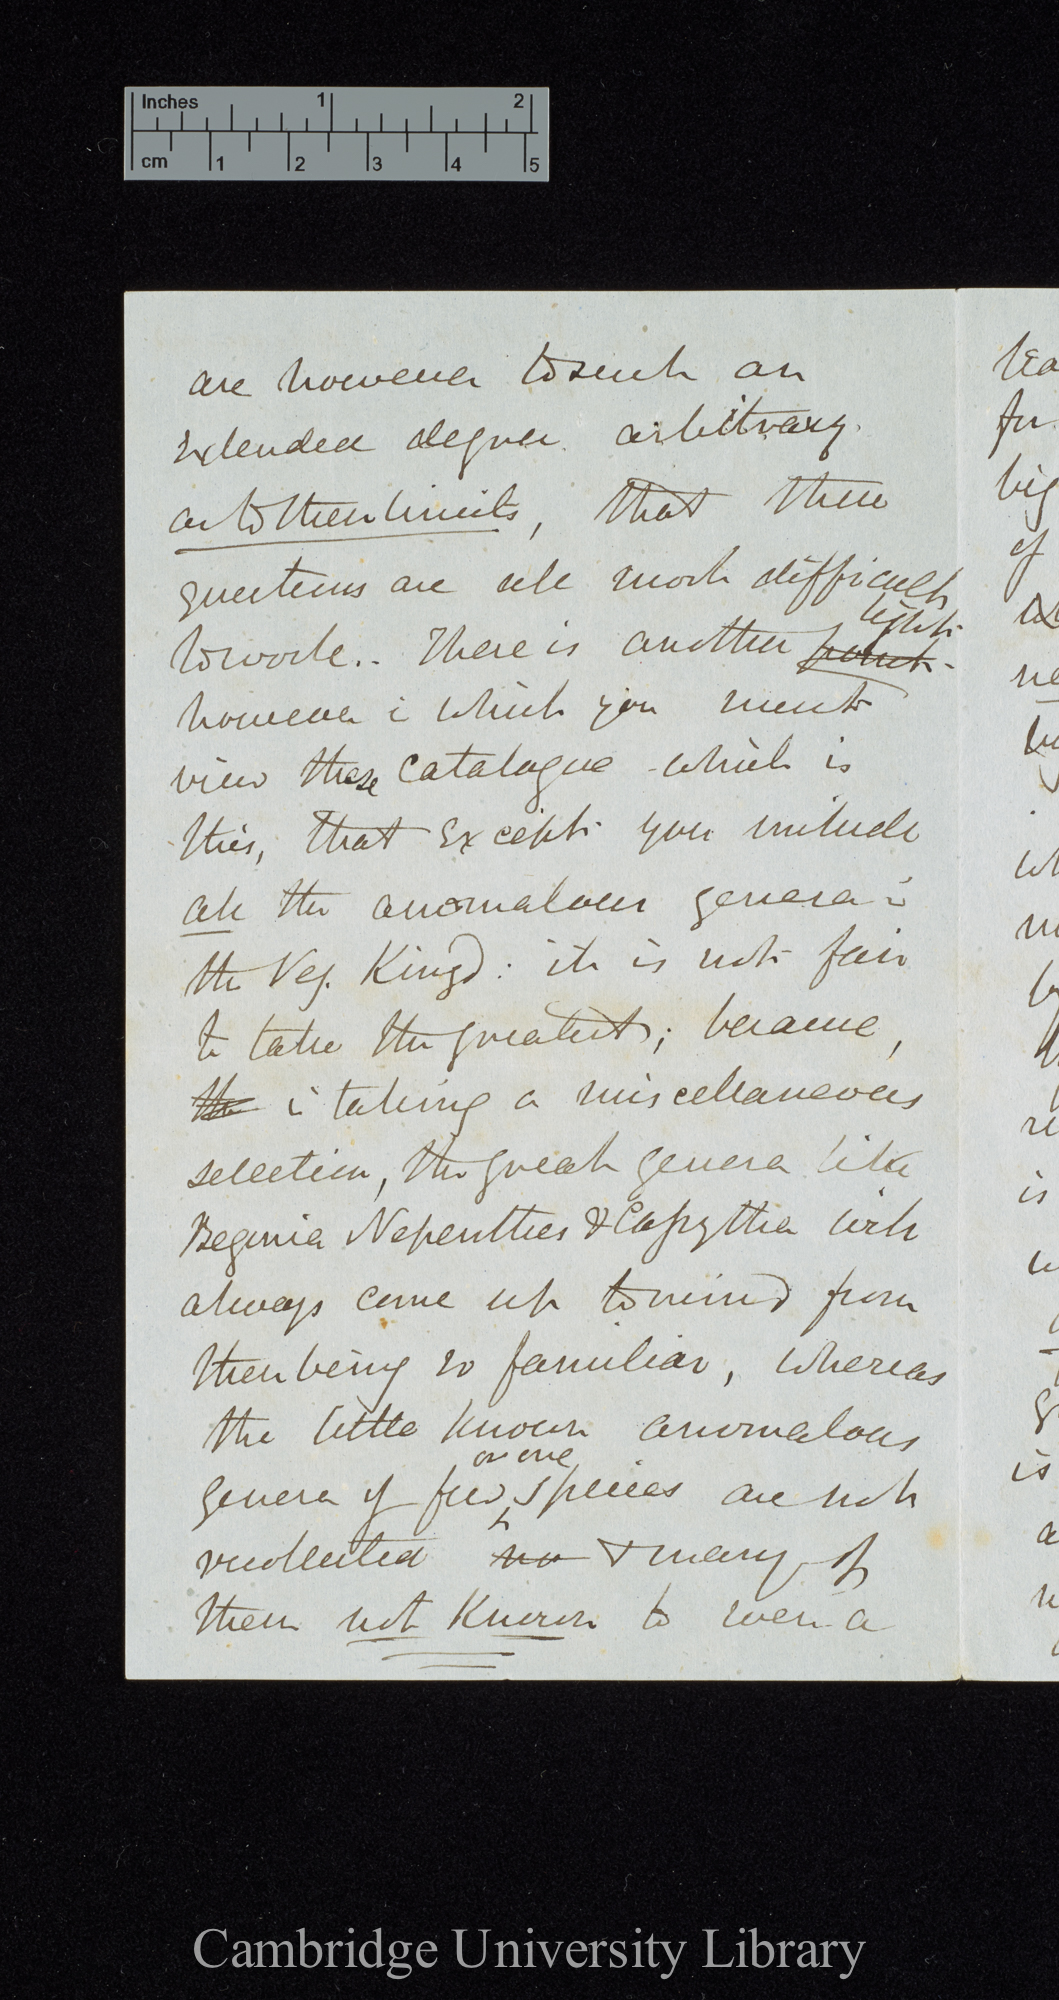 Inches 1 2
cm 1 2 3 4 5
are however to such an
extended degree arbitrary
as to their limits, that these
questions are all most difficult
to work.. There is another point light
however i which you must
view these catalogue which is
this, that except you include
all the anomalous genera i
the Veg. Kingd: it is not fair
to take the greatest; because,
the i taking a miscellaneous
selection, the great genera like
Begonia Nepenthes & Cassytha will
always come up to mind from
their being so familiar, whereas
the little known anomalous
genera of few or one species are not
recollected no & many of
them not known to even a
for
big
of
is
is
Cambridge University Library